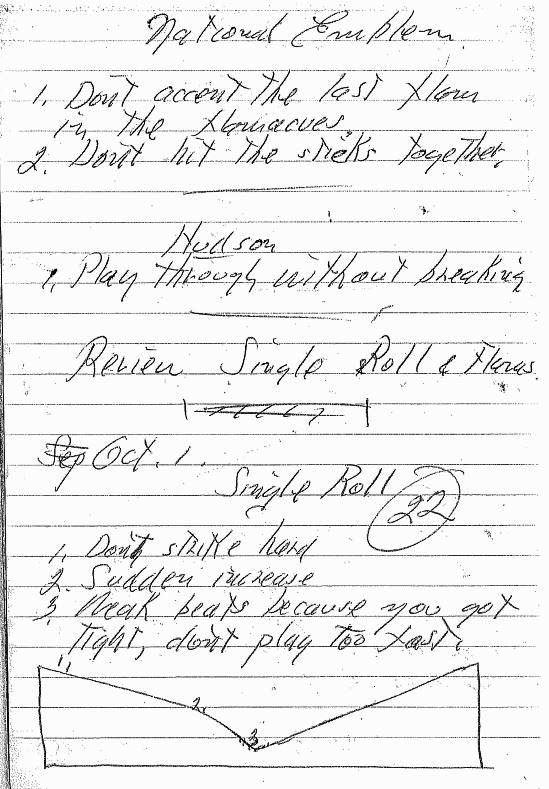 National Emblem
1. Don't accent the last flam
in the flamacues.
2. Don't hit the sticks together.
Hudson
1. Play through without breaking
Review Single Roll & Flams
Sep Oct. 1.
Single Roll
22
1. Don't strike hard
2. Sudden increase
3. Weak beats because you got
tight, don't play too fast.
1.
2.
3